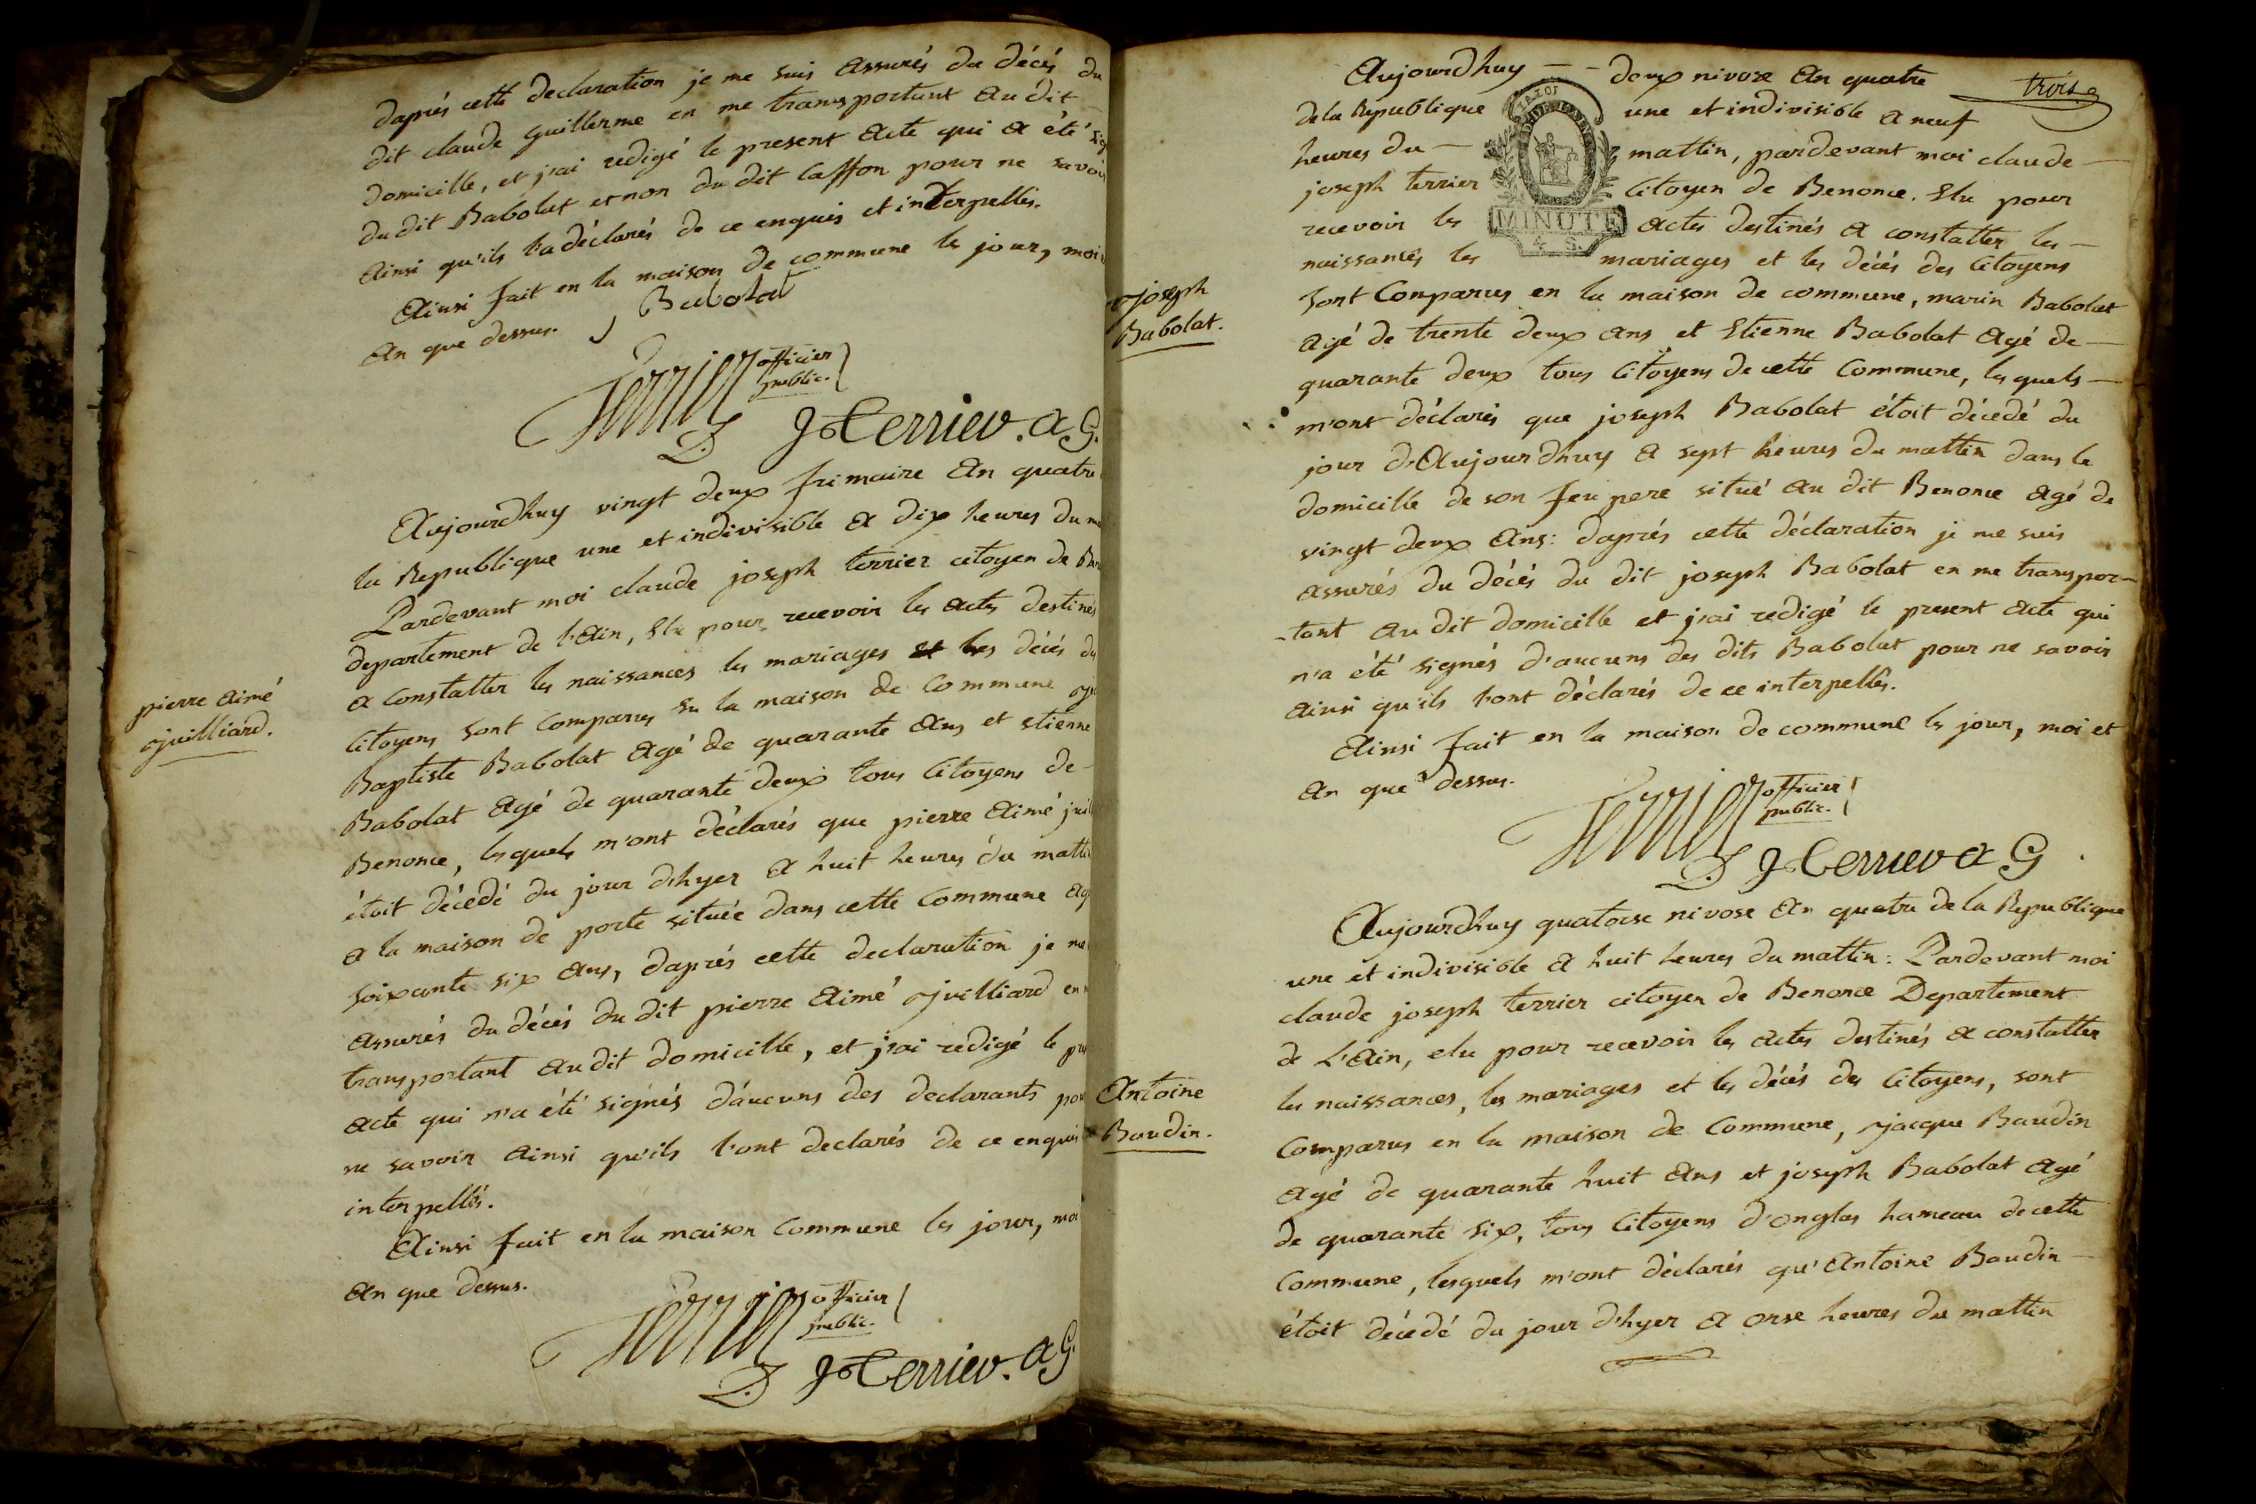 daprés cette declaration je me suis assurés du décés du
dit claude guillerme en me transportant au dit
domicille, et j'ai redigé le present acte qui a été sig
du dit Babolat et non du dit laffon pour ne savoir
ainsi qu'ils l'a déclarés de ce enquis et interpellés.
Ainsi fait en la maison de commune les jour, moi
an que dessus. Babolat
Terrier officier
public.
J Terrier. a G.
pierre aimé
juilliard.
Aujourdhuy vingt deux frimaire an quatre
la Republique une et indivisible a dix heures du m
Pardevant moi claude joseph terrier citoyen de Ben
departement de l'ain, Elu pour recevoir les actes destinés
a constatter les naissances les mariages et les décés des
Citoyens sont comparus En la maison de commune
Baptiste Babolat agé de quarante ans et etienne
Babolat agé de quarante deux tous Citoyens de
Benonce, lesquels m'ont déclarés que pierre aimé juil
étoit décédé du jour d'hyer a huit heures du matti
a la maison de porte située dans cette commune ag
soixante six ans, daprés cette declaration je me
assurés du décés du dit pierre aimé juilliard en
transportant au dit domicille, et j'ai redigé le pre
acte qui n'a été signés d'aucuns des declarants pour
ne savoir ainsi qu'ils l'ont declarés de ce enquis
interpellés.
Ainsi fait en la maison commune les jour, moi
an que dessus.
Terrier officier
public.
J Terrier. a G.
trois
Aujourdhuy — deux nivose an quatre
de la Republique une et indivisible a neuf
heures du — mattin, pardevant moi claude —
joseph terrier Citoyen de Benonce. Elu pour
recevoir les actes destinés a constatter les —
naissances les mariages et les décés des Citoyens
MINUTE
4 S.
joseph
Babolat.
sont comparus en la maison de commune, marin Babolat
agé de trente deux ans et Etienne Babolat agé de —
quarante deux tous Citoyens de cette commune, lesquels —
m'ont déclarés que joseph Babolat étoit décedé du
jour d'Aujourdhuy a sept heures du mattin dans le
domicille de son feu pere situé au dit Benonce agé de
vingt deux ans: daprés cette déclaration je me suis
assurés du décés du dit joseph Babolat en me transpor-
-tant au dit domicille et j'ai redigé le present acte qui
n'a été signés d'aucuns des dits Babolat pour ne savoir
ainsi qu'ils l'ont déclarés de ce interpellés.
Ainsi fait en la maison de commune les jour, moi et
an que dessus.
Terrier officier
public.
J Terrier a G
Antoine
Baudin.
Aujourdhuy quatorse nivose an quatre de la Republique
une et indivisible a huit heures du mattin: Pardevant moi
claude joseph terrier citoyen de Benonce Departement
de L'ain, elu pour recevoir les actes destinés a constatter
les naissances, les mariages et les décés des Citoyens, sont
Comparus en la maison de Commune, jacque Baudin
agé de quarante huit ans et joseph Babolat agé
de quarante six, tous Citoyens d'onglas hameau de cette
Commune, lesquels m'ont déclarés qu'Antoine Baudin
étoit décedé du jour d'hyer a onse heures du mattin